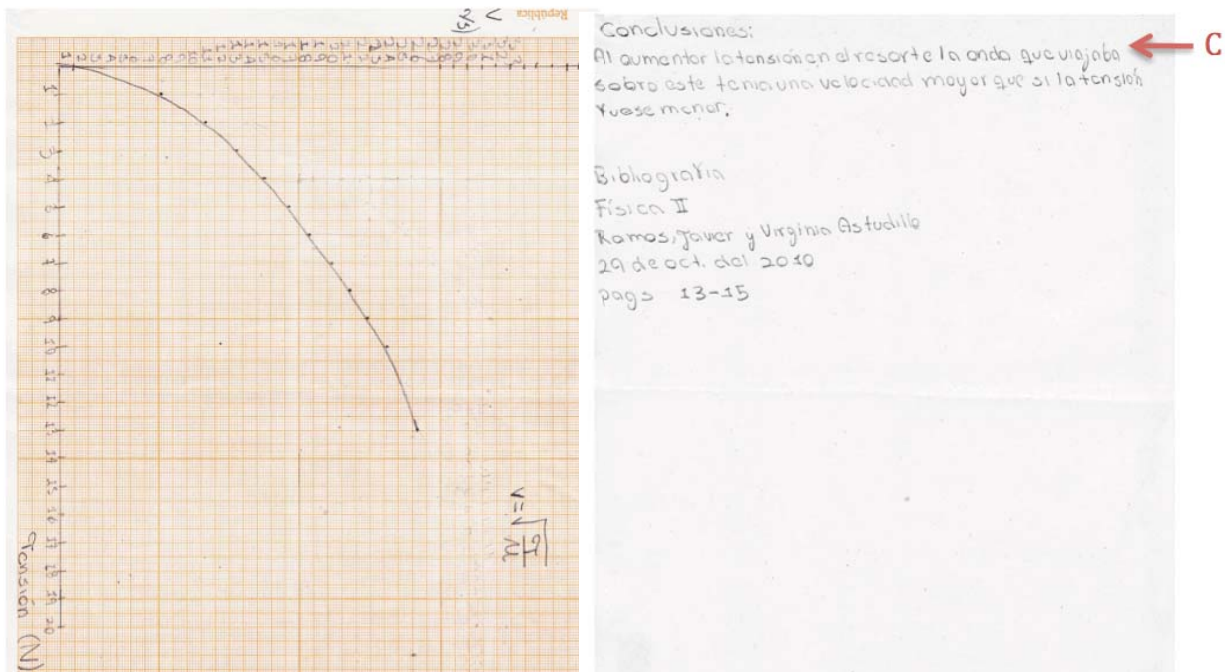 República
V
1 2 3 4 5 6 7 8 9 10 11 12 13 14 15 16 17 18 19 20
Tensión (N)
V=√T/μ
Conclusiones:
Al aumentar la tensión en el resorte la onda que viajaba
sobre este tenia una velocidad mayor que si la tensión
fuese menor.
Bibliografía
Física II
Ramos, Javier y Virginia Astudillo
29 de oct. del 2010
pags 13-15
C